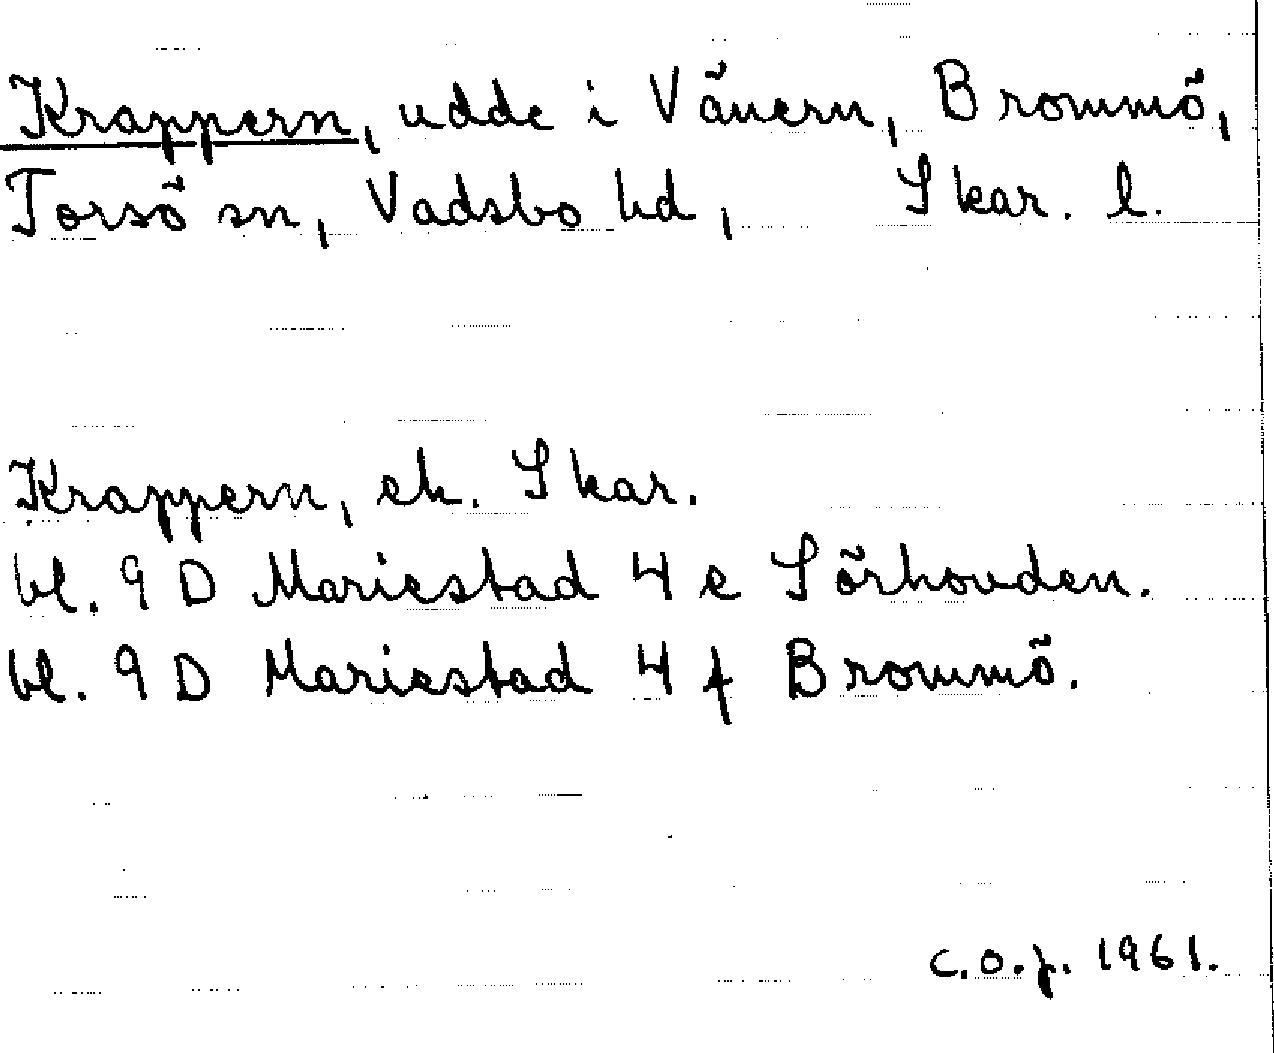 Krappern, udde i Vänern, Brommö,
Torsö sn, Vadsbo hd, Skar. l.
Krappern, ek. Skar.
bl. 9 D Mariestad 4 e Sörhouden.
bl. 9 D Mariestad 4 f Brommö.
c.o.j. 1961.